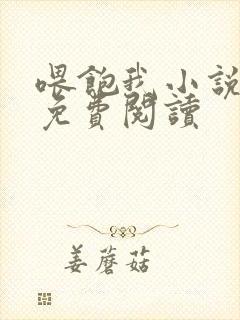 喂飽我小說
免費閱讀
姜蘑菇